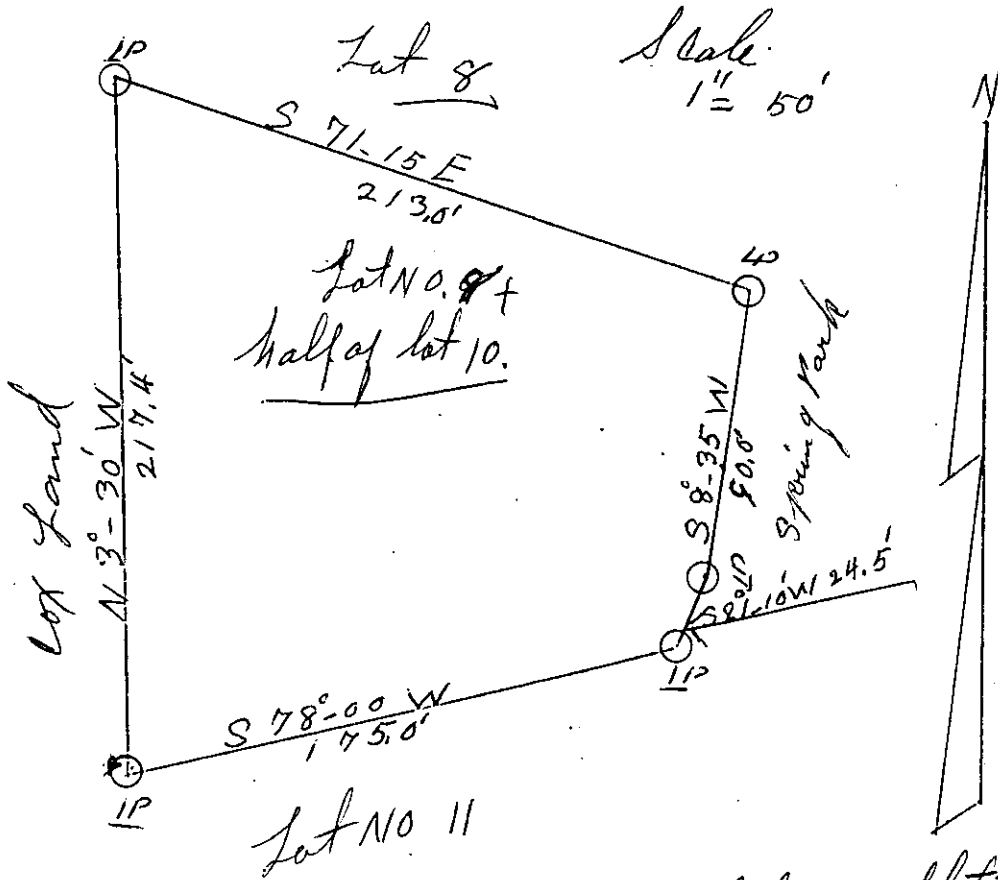 Lot 8
Scale
1" = 50'
N
IP
S 71-15 E
213.0'
IP
Lot NO. 9 +
half of lot 10.
Cox Land
N 3°-30' W
217.4'
S 8°-35 W
90.0'
Spring Park
IP
24.5'
IP
S 78°-00 W
175.0'
IP
Lot NO 11